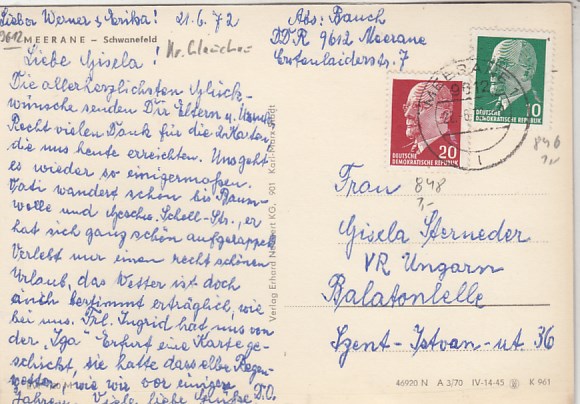 Lieber Werner & Erika! 21.6.72
9612 MEERANE – Schwanefeld
Liebe Gisela!
Die allerherzlichsten Glück-
wünsche senden Dir Eltern u.
Recht vielen Dank für die 2 Karten,
die uns heute erreichten. Uns geht
es wieder so einigermaßen.
Vati wandert schon bis Baum-
wolle und Geschw. Scholl-Str., er
hat sich ganz schön aufgerappelt.
Verlebt nur einen recht schönen
Urlaub, das Wetter ist doch
bestimmt erträglich, wie
bei uns. Frl. Ingrid hat uns von
der "Iga"-Erfurt eine Karte ge-
schickt, sie hatte dasselbe Regen-
wetter, wie wir vor einigen
Jahren. Viele liebe Grüße D.O.
Kr. Glauchau
Verlag Erhard Neubert KG, 901 Karl-Marx-Stadt
Abs: Bauch
DDR 9612 Meerane
Crotenlaiderstr. 7
MEERANE
9612
DEUTSCHE
DEMOKRATISCHE REPUBLIK
20
10
DEUTSCHE
DEMOKRATISCHE REPUBLIK
848
846
Frau
Gisela Sterneder
VR Ungarn
Balatonlelle
Szent-Istvan-ut. 36
46920 N A 3/70 IV-14-45 K 961